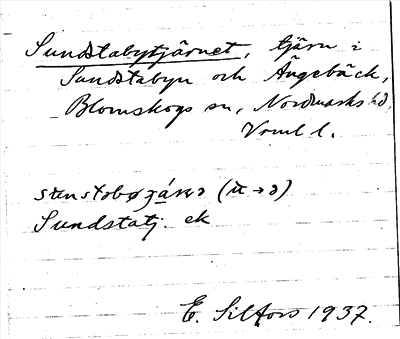 Sundstabytjärnet, tjärn i
Sundstabyn och Ängebäck,
Blomskogs sn, Nordmarks hd,
Vrml l.
(ü→ə)
Sundstatj. ek
E. Silfors 1937.